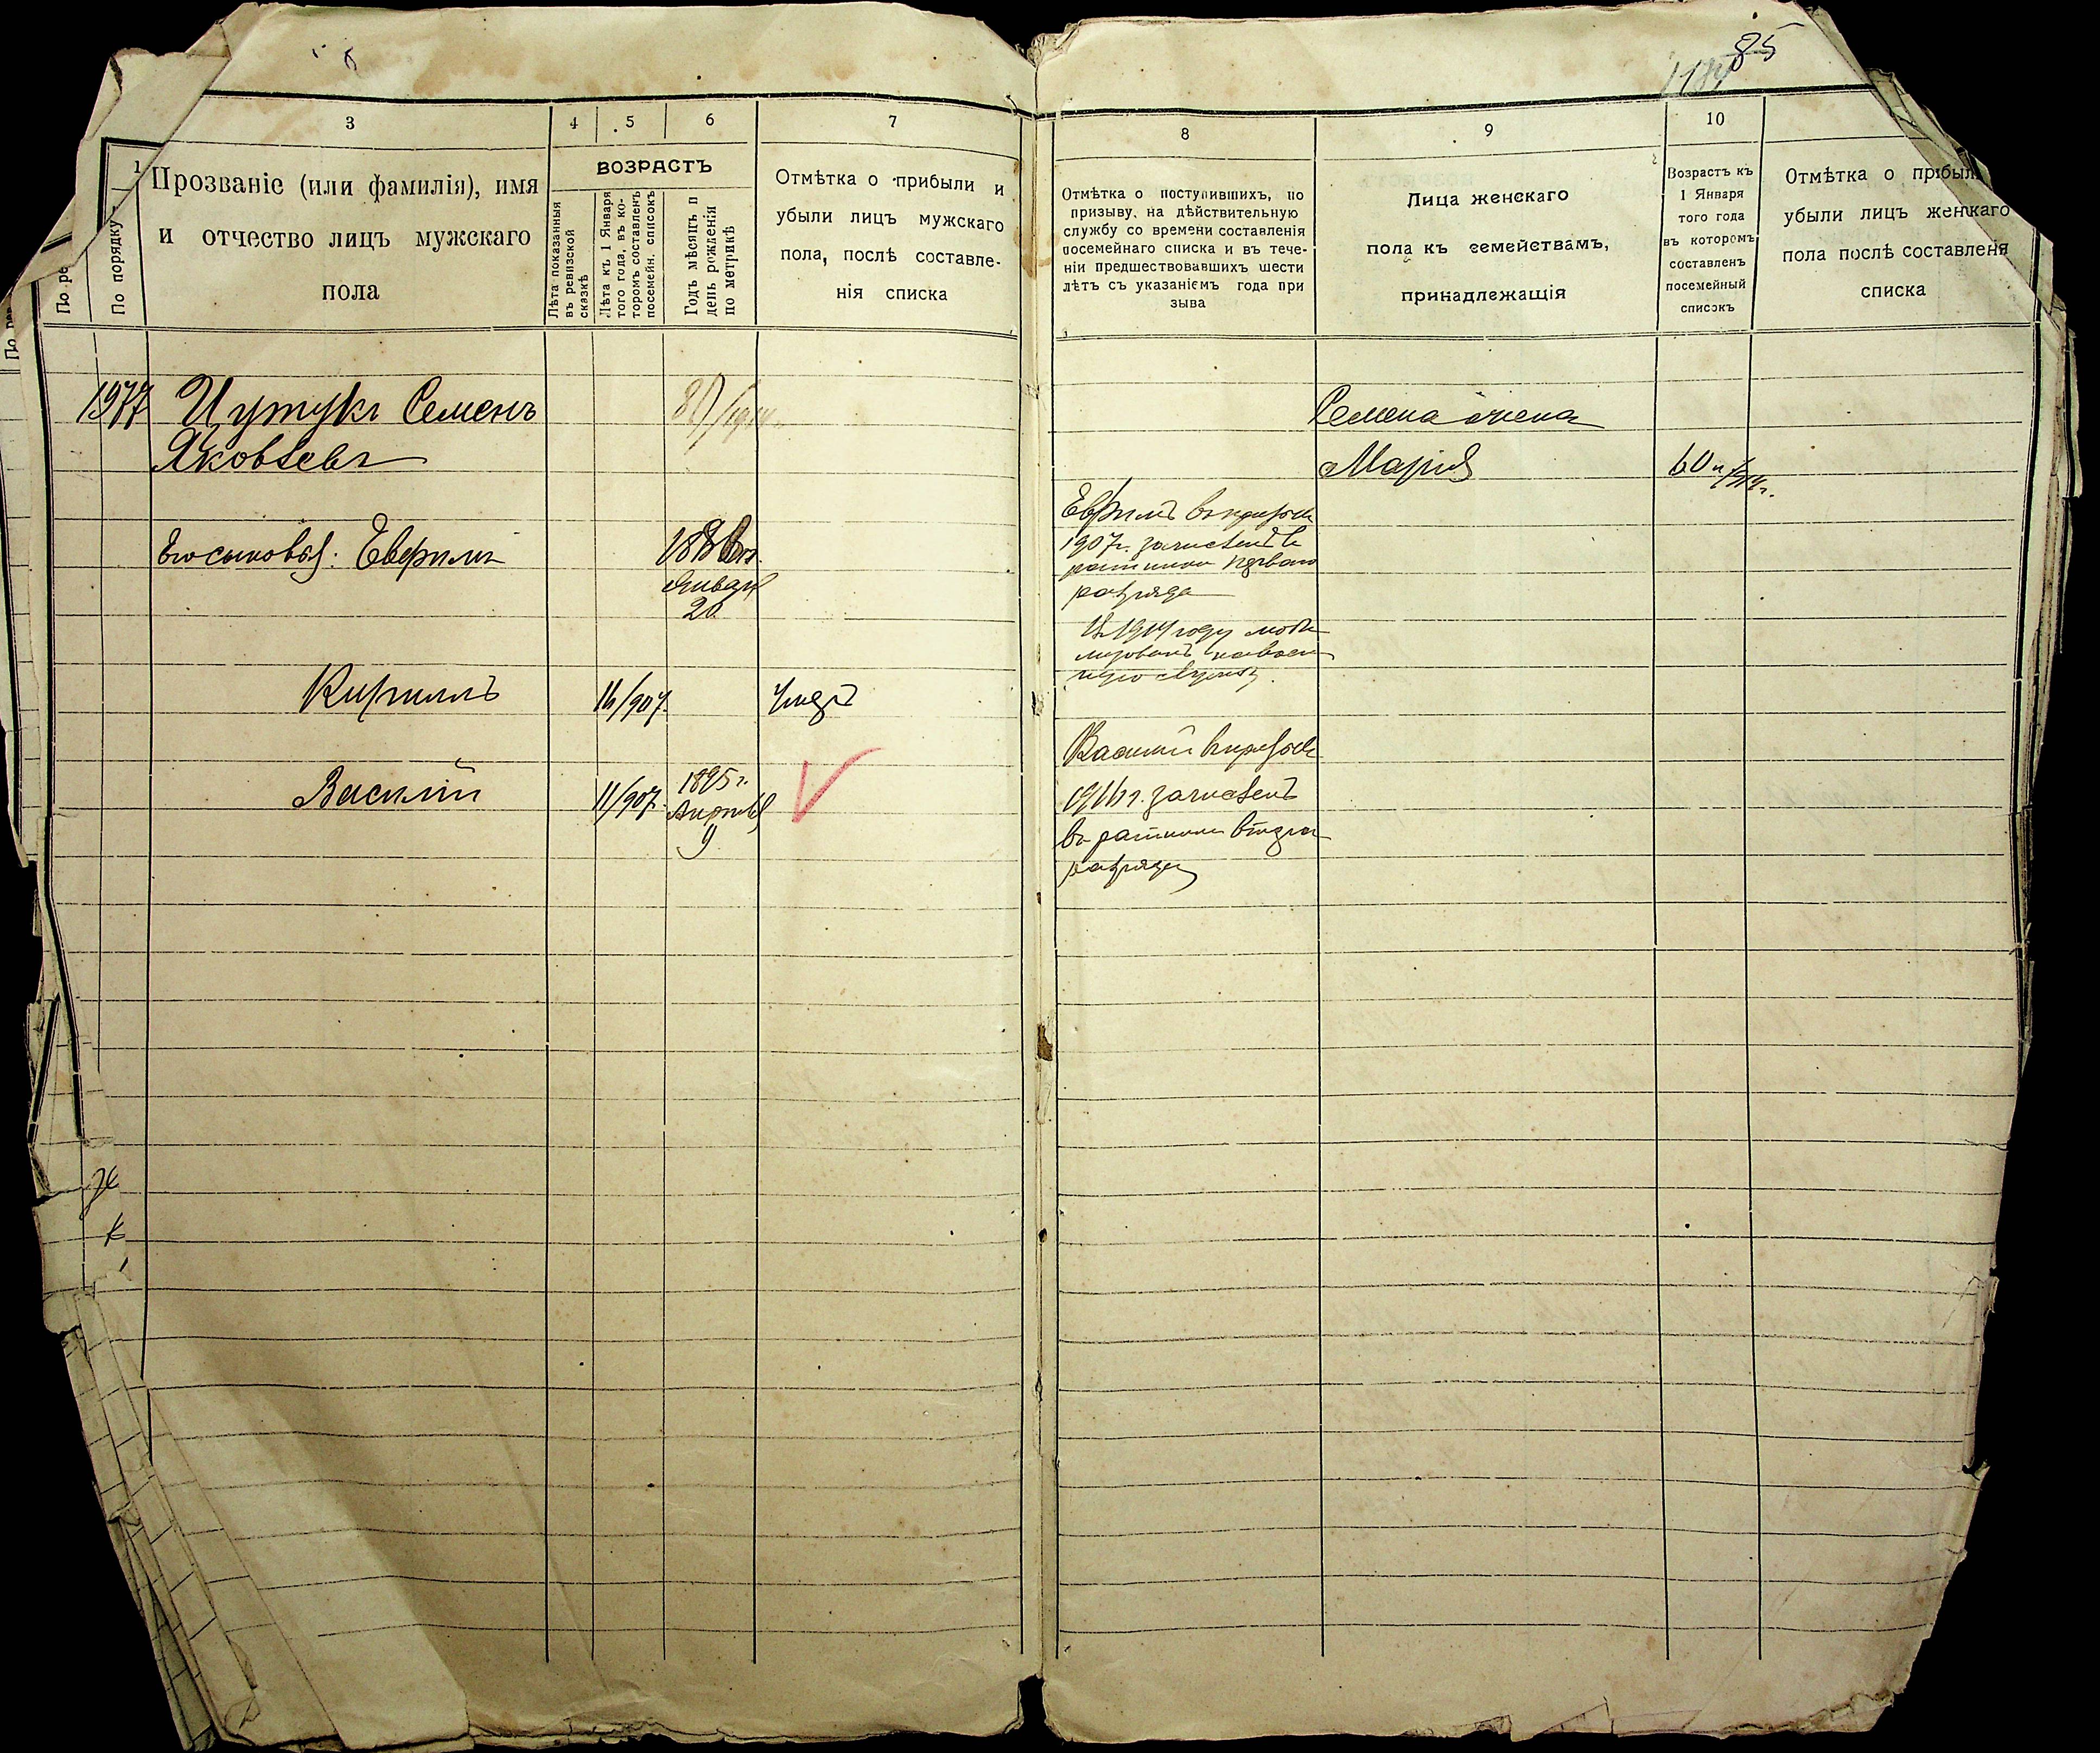 85
3
4
5
6
7
8
9
10
1
По порядку
Прозваніе (или фамилія), имя
и отчество лицъ мужскаго
пола
ВОЗРАСТЪ
Лѣта показанныя
въ ревизской
сказкѣ
Лѣта къ 1 Января
того года, въ ко-
торомъ составленъ
посемейн. списокъ
Годъ мѣсяцъ и
день рожденія
по метрикѣ
Отмѣтка о прибыли и
убыли лицъ мужскаго
пола, послѣ составле-
нія списка
Отмѣтка о поступившихъ, по
призыву, на дѣйствительную
службу со времени составленія
посемейнаго списка и въ тече-
ніи предшествовавшихъ шести
лѣтъ съ указаніемъ года при
зыва
Лица женскаго
пола къ семействамъ,
принадлежащія
Возрастъ къ
1 Января
того года
въ которомъ
составленъ
посемейный
списокъ
Отмѣтка о прибыли
убыли лицъ женскаго
пола послѣ составленія
списка
1977
Семенъ
Яковлевъ
Семена жена
Марія
60
Его сыновья: Ефримъ
Января
20
Ефримъ въ призывѣ
1907г. зачисленъ въ
ратники перваго
разряда
Въ 1914 году моби
лизованъ на воен
ную службу.
Кириллъ
16/907.
Умеръ
Василій
11/907.
1895г.
Апрѣля
9
Василій въ призывѣ
1916г. зачисленъ
въ ратники втораго
разряда